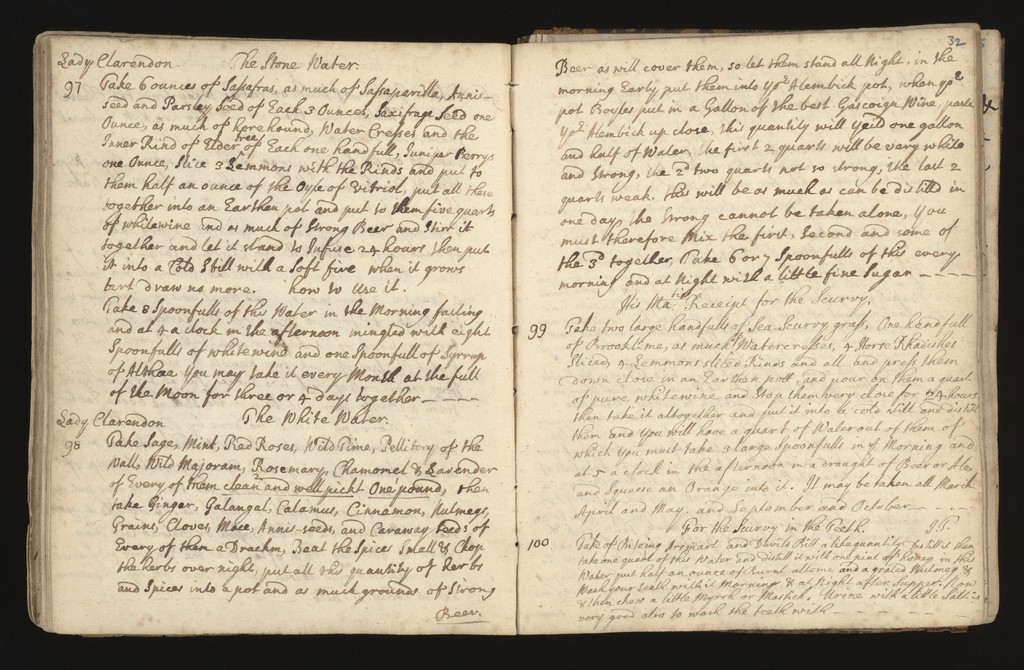 Lady Clarendon. The Stone Water.
97 Take 6 ounces of Sassafras, as much of Sassaparilla, Annis-
seed and Parsley Seed of Each 3 Ounces, Saxifrage Seed one
Ounce, as much of horehound, Water Cresses and the
Inner Rind of Elder tree of Each one handfull, Juniper Berrys
one Ounce, Slice 3 Lemmons with the Rinds and put to
them half an ounce of the Oyle of Vitriol, put all these
together into an Earthen pot and put to them five quarts
of whitewine and as much of Strong Beer and Stirr it
together and let it stand to Infuse 24 hours then put
it into a Cold Still with a Soft fire when it grows
tart draw no more. how to Use it.
Take 8 Spoonfulls of this Water in the Morning fasting
and at 4 a clock in the afternoon mingled with eight
Spoonfulls of whitewine and one Spoonfull of Syrrup
of Althaa You may take it every Month at the full
of the Moon for three or 4 days together
Lady Clarendon The White Water.
98 Take Sage, Mint, Red Roses, Wild Time, Pellitory of the
Wall, Wild Majoram, Rosemary, Chamomel & Lavender
of Every of them clean and well pickt One pound, then
take Ginger, Galangal, Calamus, Cinnamon, Nutmegs,
Grains, Cloves, Mace, Annis-seeds, and Caraway Seeds of
Every of them a Drachm, Beat the Spices Small & Chop
the herbs over night, put all this quantity of herbs
and Spices into a pot and as much grounds of Strong
Beer.
32
Beer as will cover them, so let them stand all Night, in the
morning Early, put them into yor Alembick pot, when yor
pot Boyles put in a Gallon of the best Gascoign Wine, paste
Yor Alembick up close, this quantity will Yeild one gallon
and half of Water, the first 2 quarts will be very white
and strong, the 2d two quarts not so strong, the last 2
quarts weak. this will be as much as can be distilld in
one day, the strong cannot be taken alone, You
must therefore Mix the first, Second and some of
the 3d together, Take 6 or 7 Spoonfulls of this every
morning and at Night with a little fine Sugar
His Maties Receipt for the Scurvy.
99 Take two large handfulls of Sea Scurvy grass, One handfull
of Brooklime, as much Watercresses, 4 Horse Rhadishes
Sliced, 4 Lemmons sliced Rinds and all and press them
down close in an Earthen pott, and pour on them a quart
of pure whitewine and Stop them every close for 24 hours
then take it altogether and put it into a cold still and distill
them and You will have a quart of Water out of them of
which You must take 3 large Spoonfulls in ye Morning and
at 5 a clock in the afternoon in a draught of Beer or Ale
and Squeese an Orange into it. It may be taken all March
April and May. and September and October
For the Scurvy in the Teeth.
100 Take of Arsmart and Devils Bitt a like quantity Distill it then
take one quart of this Water and distill it with one pint of honey in this
Water put half an ounce of burnt allome and a grated Nutmeg &
Wash your teeth with it Morning & at Night after Supper. Now
& then chew a little Myrrh or Mastick. Urine with a little Salt is
very good also to wash the teeth with